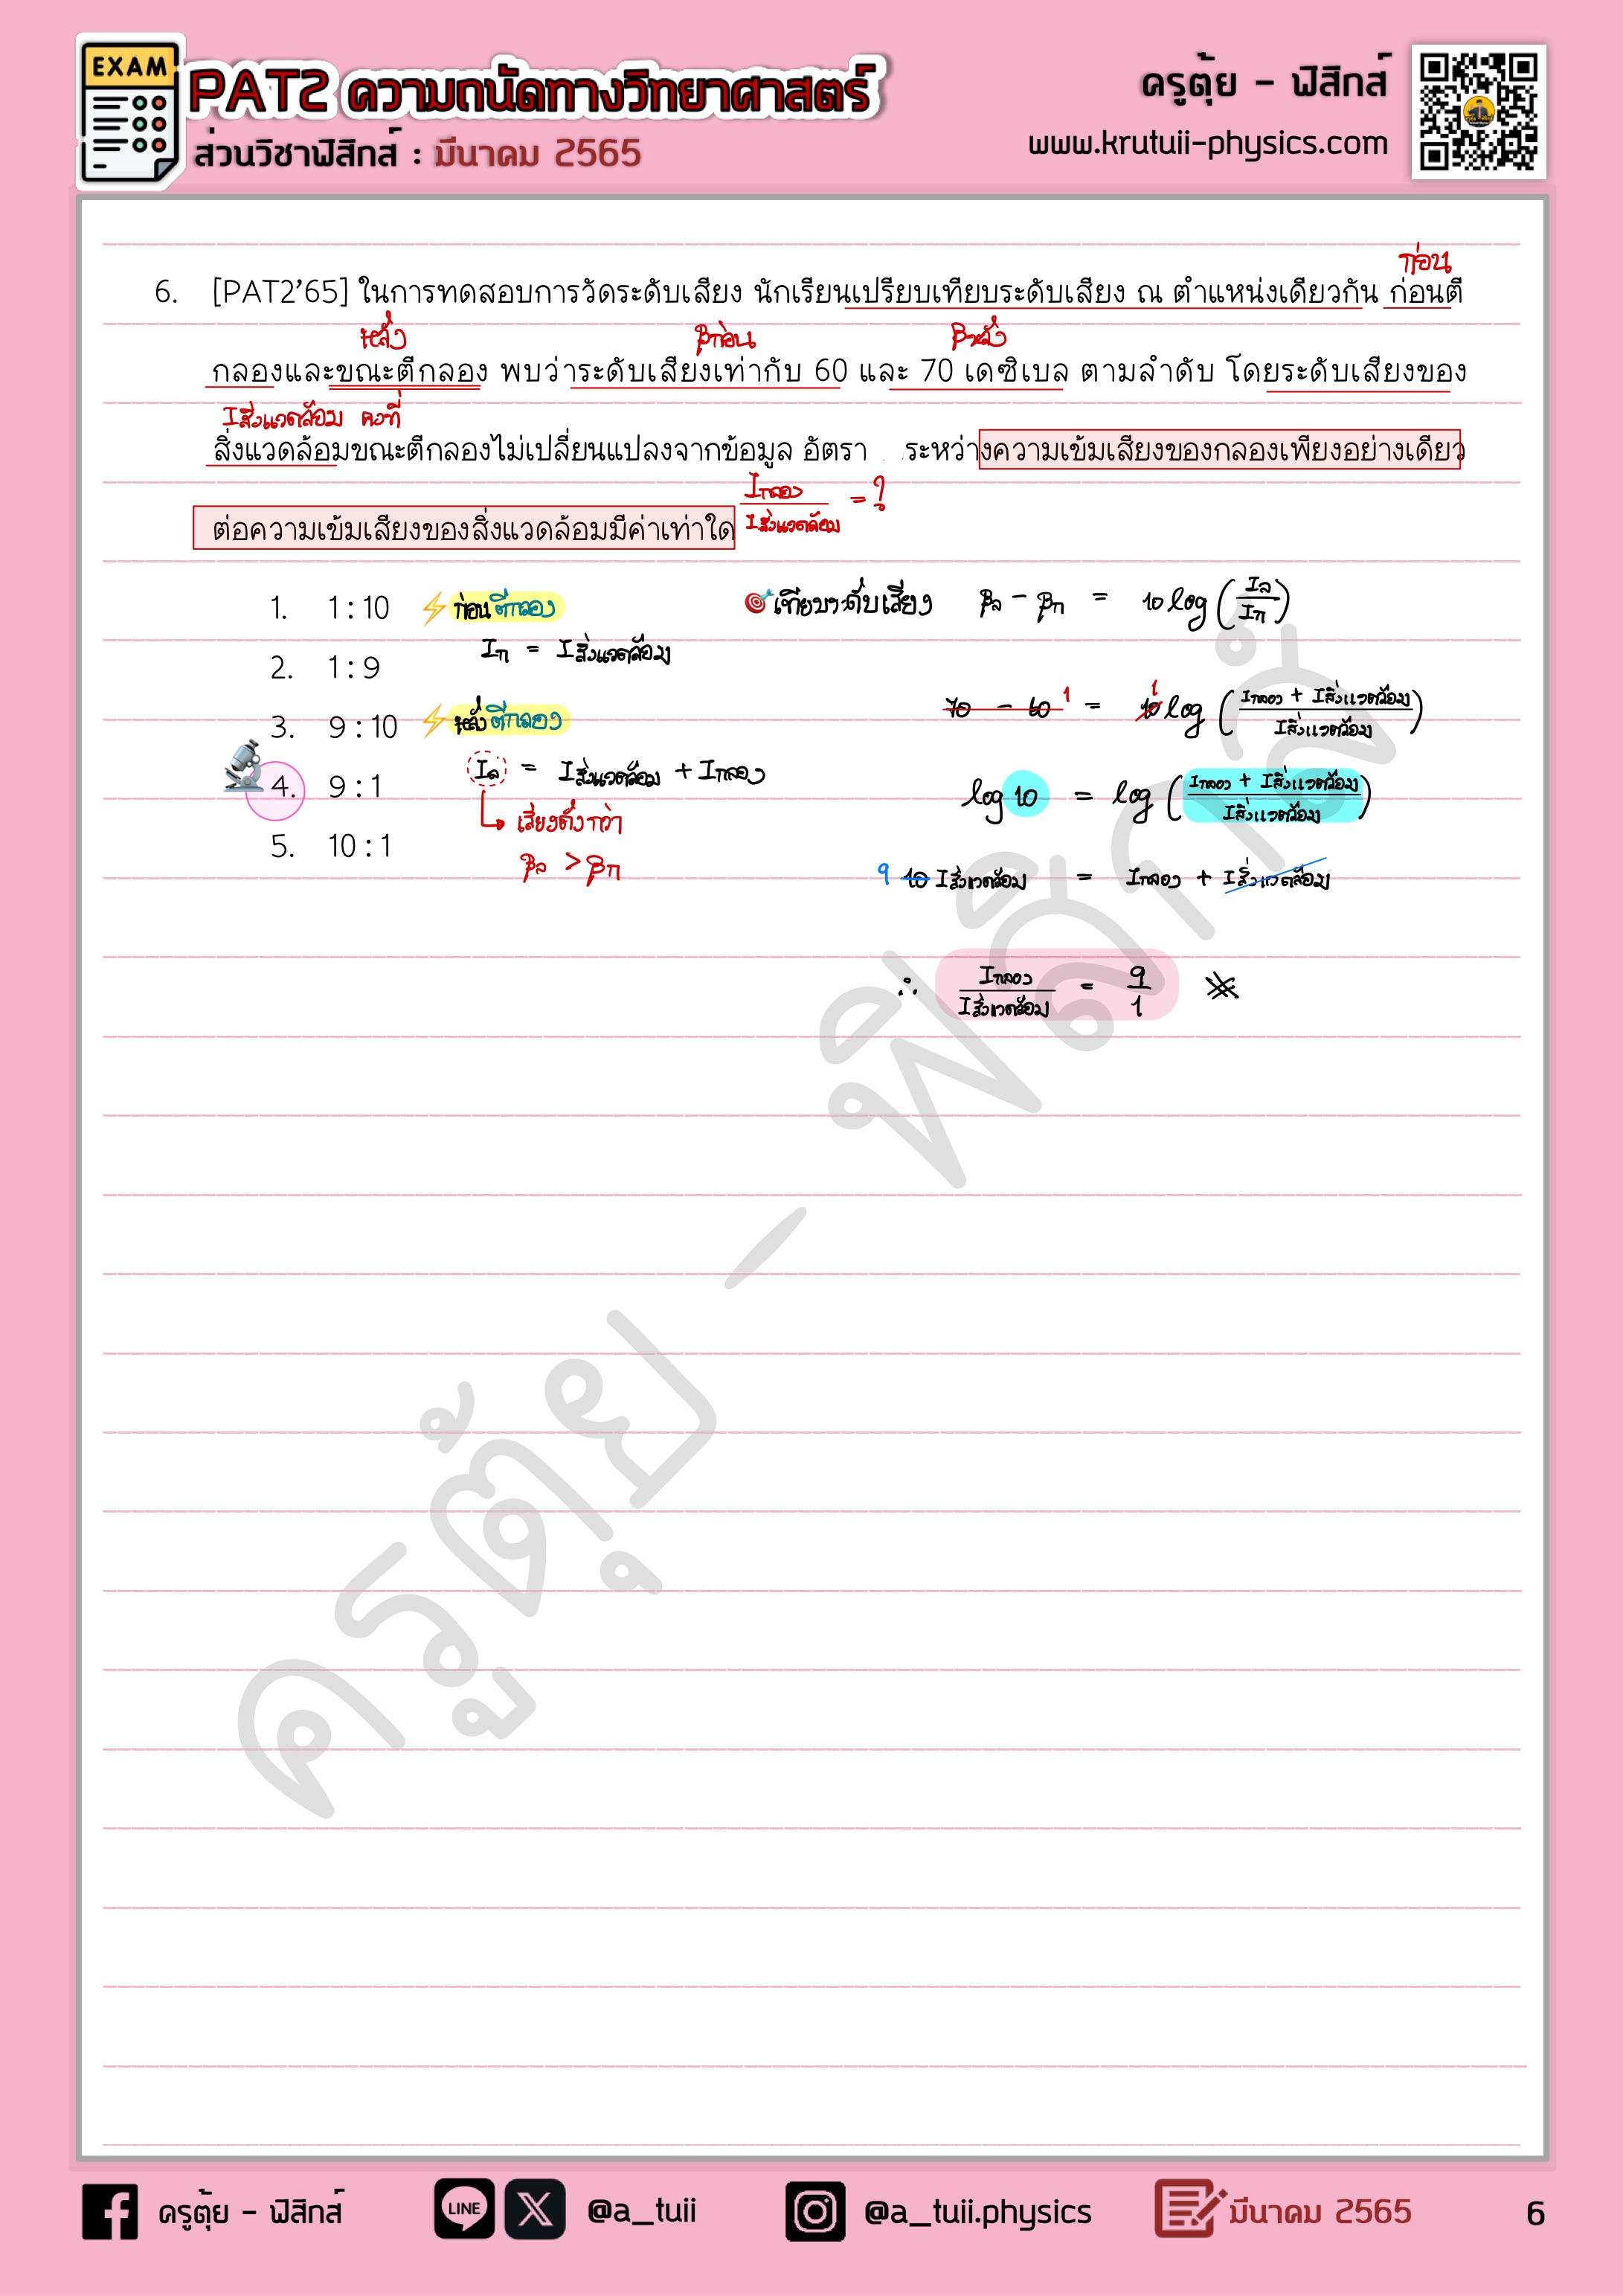 EXAM
PAT2 ความถนัดทางวิทยาศาสตร์
ส่วนวิชาฟิสิกส์ : มีนาคม 2565
ครูตุ้ย - ฟิสิกส์
www.krutuii-physics.com
ก่อน
6. [PAT2'65] ในการทดสอบการวัดระดับเสียง นักเรียนเปรียบเทียบระดับเสียง ณ ตำแหน่งเดียวกัน ก่อนตี
หลัง βก่อน βหลัง
กลองและขณะตีกลอง พบว่าระดับเสียงเท่ากับ 60 และ 70 เดซิเบล ตามลำดับ โดยระดับเสียงของ
Iสิ่งแวดล้อม คงที่
สิ่งแวดล้อมขณะตีกลองไม่เปลี่ยนแปลงจากข้อมูล อัตรา ระหว่างความเข้มเสียงของกลองเพียงอย่างเดียว
ต่อความเข้มเสียงของสิ่งแวดล้อมมีค่าเท่าใด Iกลอง / Iสิ่งแวดล้อม = ?
1. 1 : 10
2. 1 : 9
3. 9 : 10
4. 9 : 1
5. 10 : 1
ก่อนตีกลอง
Iก = Iสิ่งแวดล้อม
หลังตีกลอง
Iล = Iสิ่งแวดล้อม + Iกลอง
เสียงดังกว่า
βล > βก
เทียบระดับเสียง βล - βก = 10 log (Iล / Iก)
70 - 60 1 = 10 1 log (Iกลอง + Iสิ่งแวดล้อม / Iสิ่งแวดล้อม)
log 10 = log (Iกลอง + Iสิ่งแวดล้อม / Iสิ่งแวดล้อม)
9 10 Iสิ่งแวดล้อม = Iกลอง + Iสิ่งแวดล้อม
∴ Iกลอง / Iสิ่งแวดล้อม = 9 / 1
ครูตุ้ย - ฟิสิกส์
ครูตุ้ย - ฟิสิกส์
LINE
@a_tuii
@a_tuii.physics
มีนาคม 2565
6